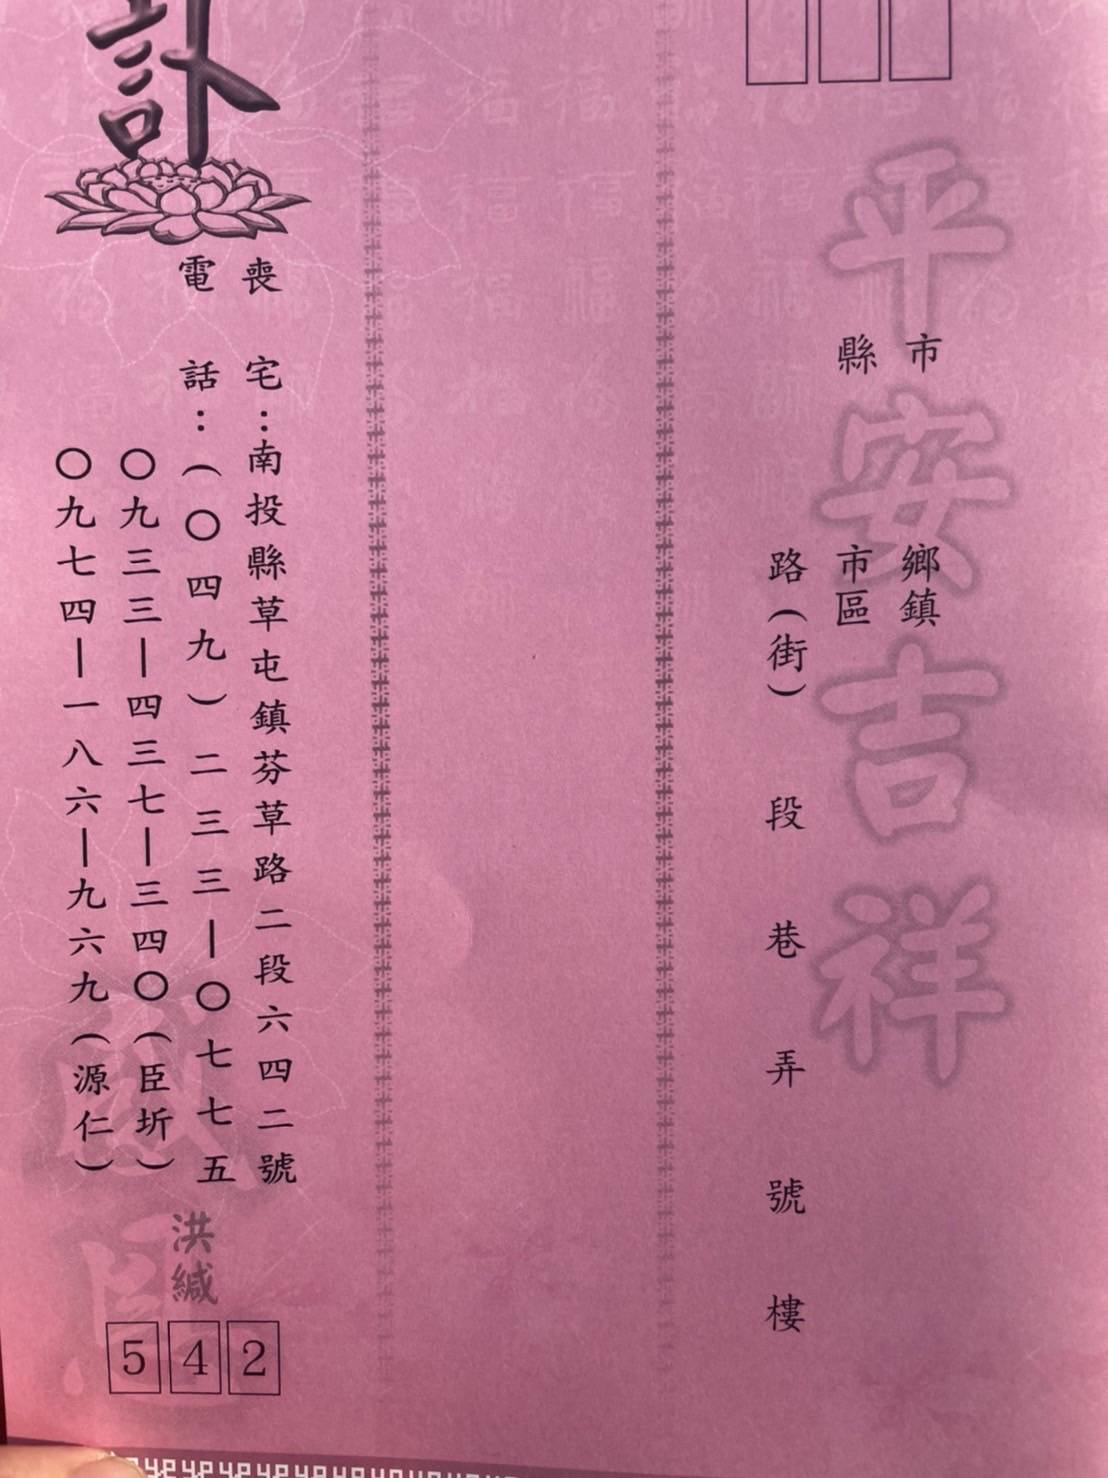 平安吉祥
市
縣
鄉鎮
市區
路(街)　段　巷　弄　號　樓
訃
喪宅：南投縣草屯鎮芬草路二段六四二號
電話：(〇四九)二三三—〇七七五
〇九三三—四三七—三四〇(臣圻)
〇九七四—一八六—九六九(源仁)
洪緘
542
感恩